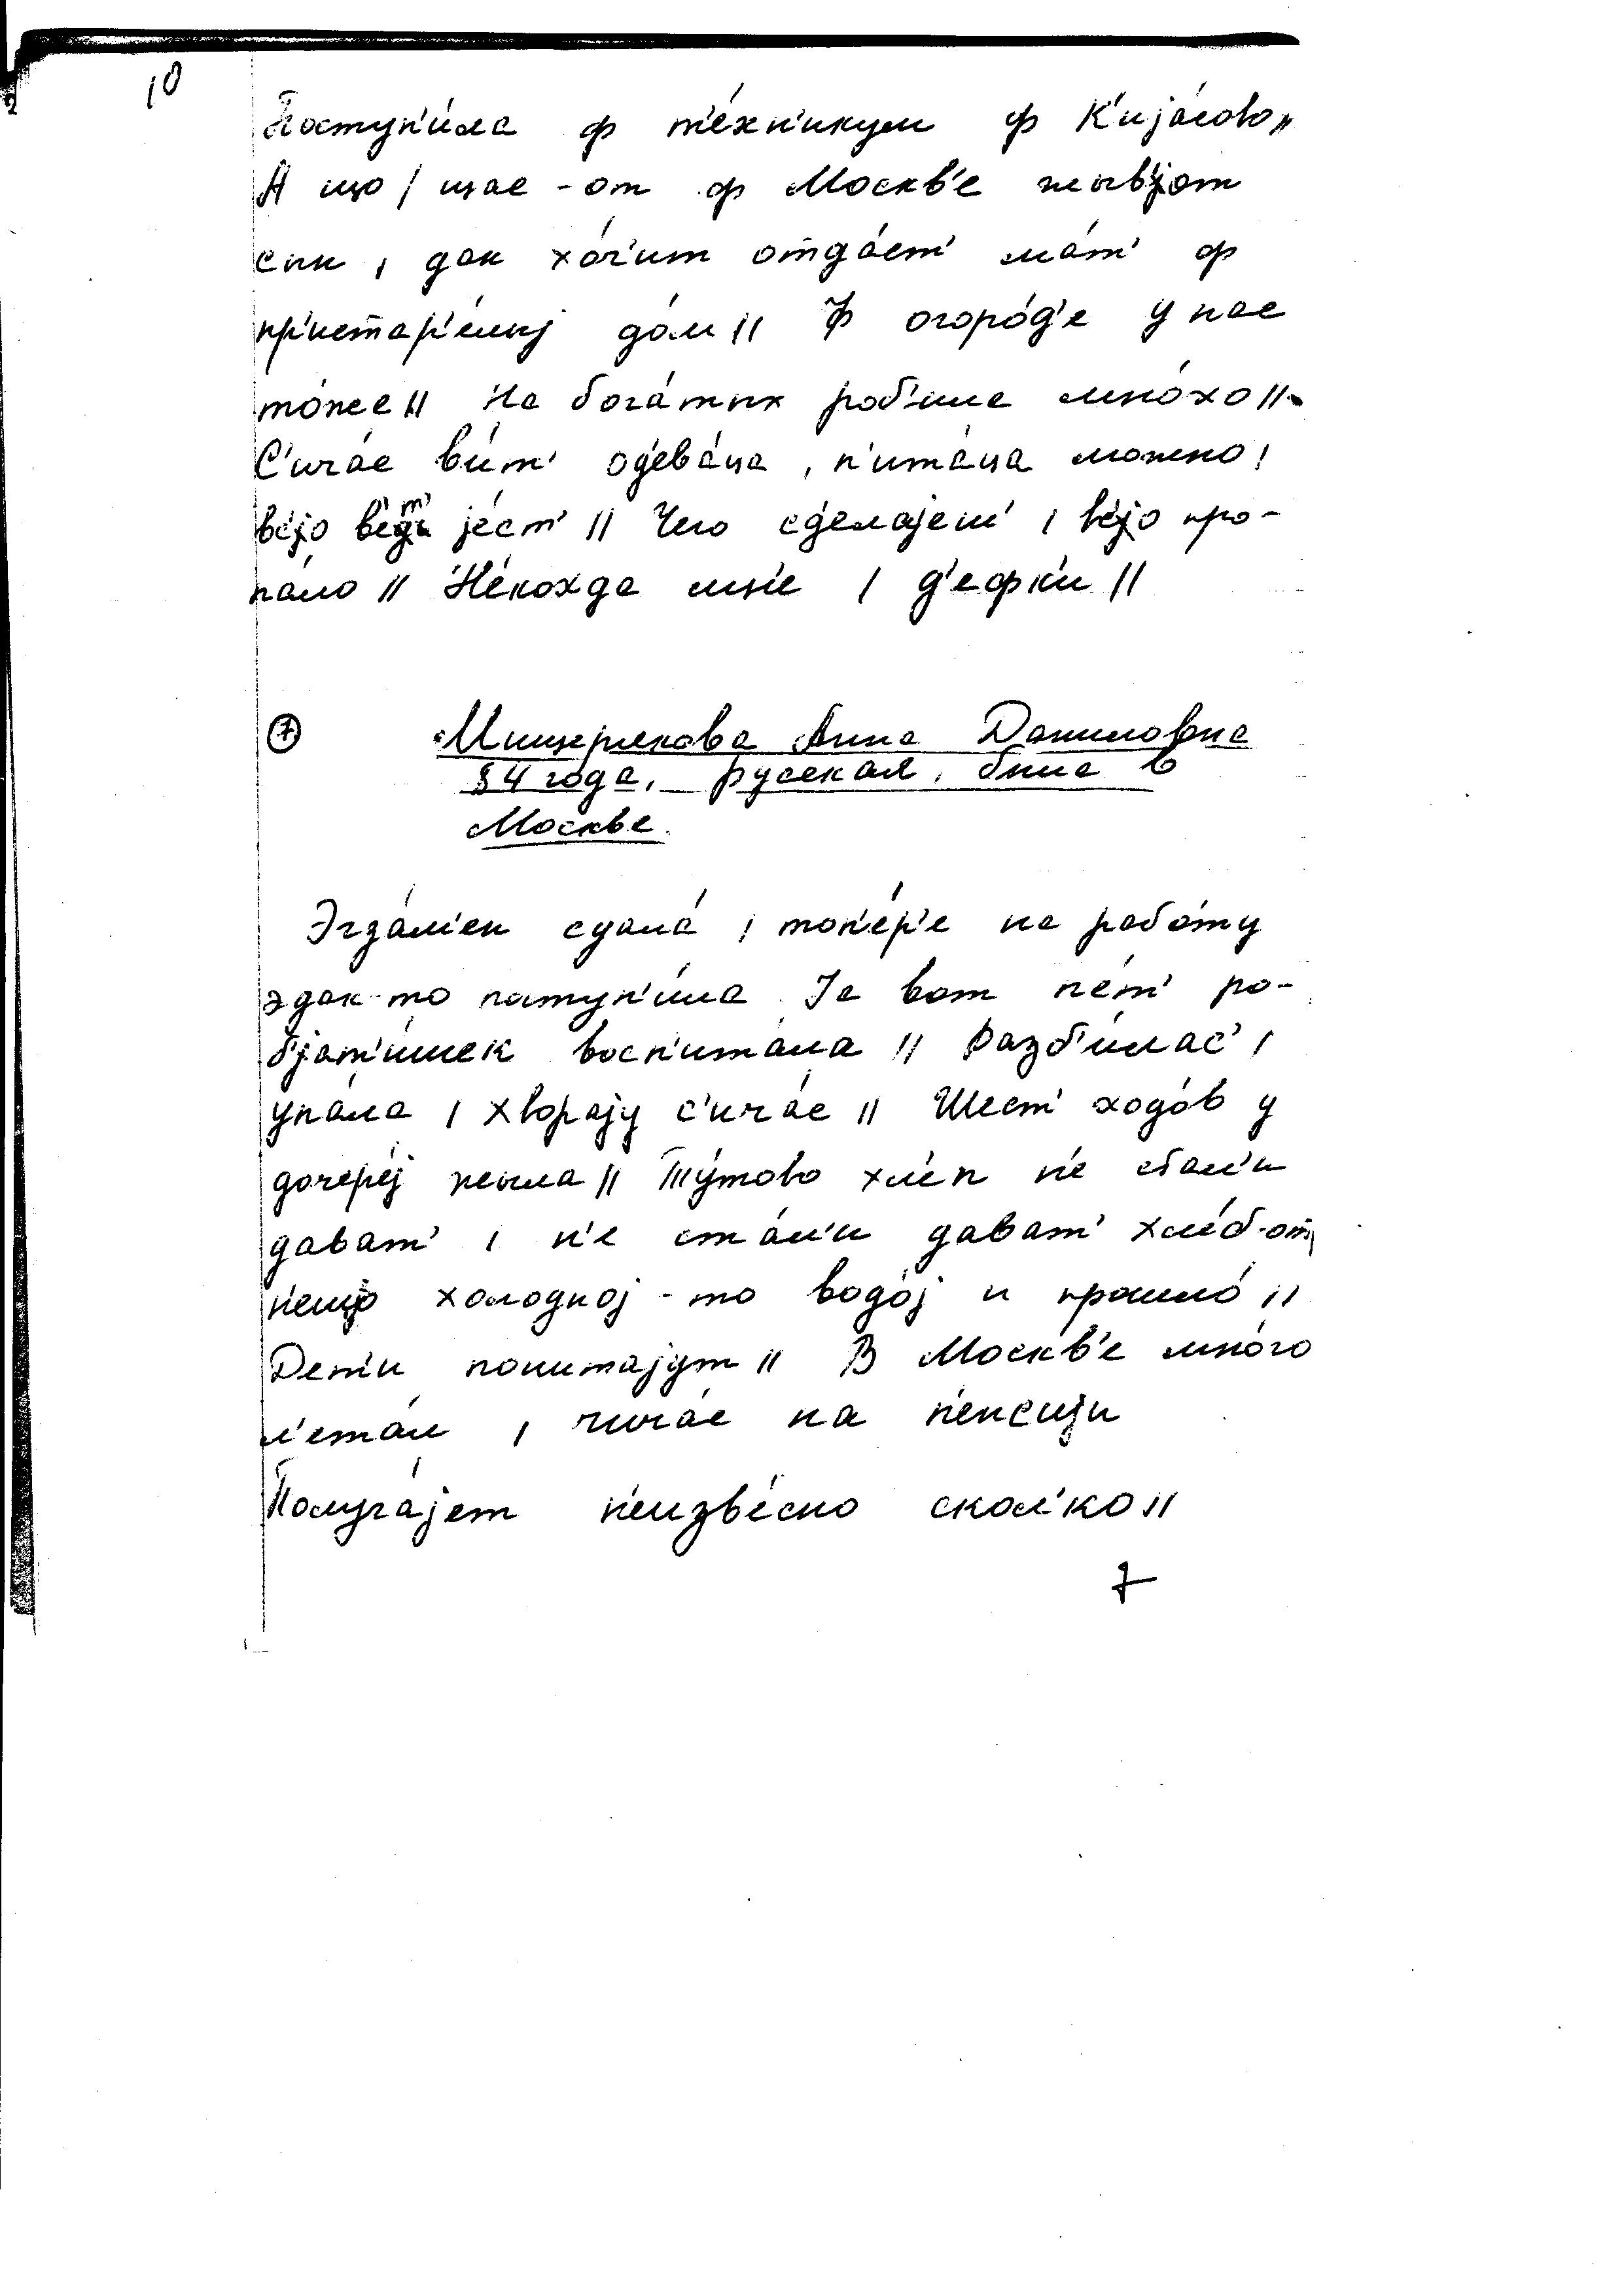 10
Поступ'и́ла ф т'е́хн'икум ф К'иjа́сово //
А що / щас -от ф Москв'е жыв'jот
сын , дак хо́ч'ит отда́ст' ма́т' ф
пр'истар'е́лыj до́м // Ф огоро́д'е у нас
то́же // На бога́тых роб'ила мно́хо //
С'ича́с ви́т' од'ева́ца , п'ита́ца можно ,
в'с'jо в'ет' jе́ст' // Чего сд'елаjеш' , в'с'jо про-
па́ло // Н'е́кохда мн'е / д'ефк'и //
7 Мищерякова Анна Даниловна
84 года, русская, была в
Москве.
Эгза́м'ен сдала́ , топ'е́р'е на рабо́ту
эдак-то паступ'и́ла Jа вот п'е́т' ро-
б'jат'и́шек восп'ита́ла // Разб'и́лас' ,
упа́ла , хвораjу с'ича́с // Шест' ходо́в у
дочер'е́j жыла // Ту́тово хл'е́п н'е стал'и
дават' , н'е ста́л'и дават' хл'е́б-от,
н'ещо холодноj - то водо́j и прошло́ //
Дет'и почитаjут // В Москв'е мно́го
л'ета́л , чича́с на п'енсиjи
Получа́jет н'еизв'е́сно скол'ко //
7